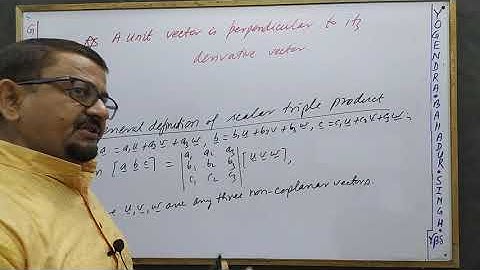 G
RS A unit vector is perpendicular to its
derivative vector
General definition of scalar triple product
a = a₁u + a₂v + a₃w, b = b₁u + b₂v + b₃w, c = c₁u + c₂v + c₃w,
[a b c] = | a₁ a₂ a₃ |
| b₁ b₂ b₃ | [u v w],
| c₁ c₂ c₃ |
u, v, w are any three non-coplanar vectors.
YOGENDRA•BAHADUR•SINGH•
YBS